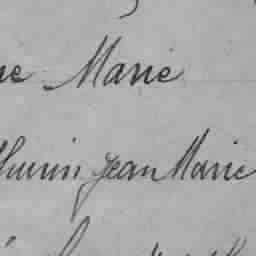 ne Marie
thurin Jean Marie